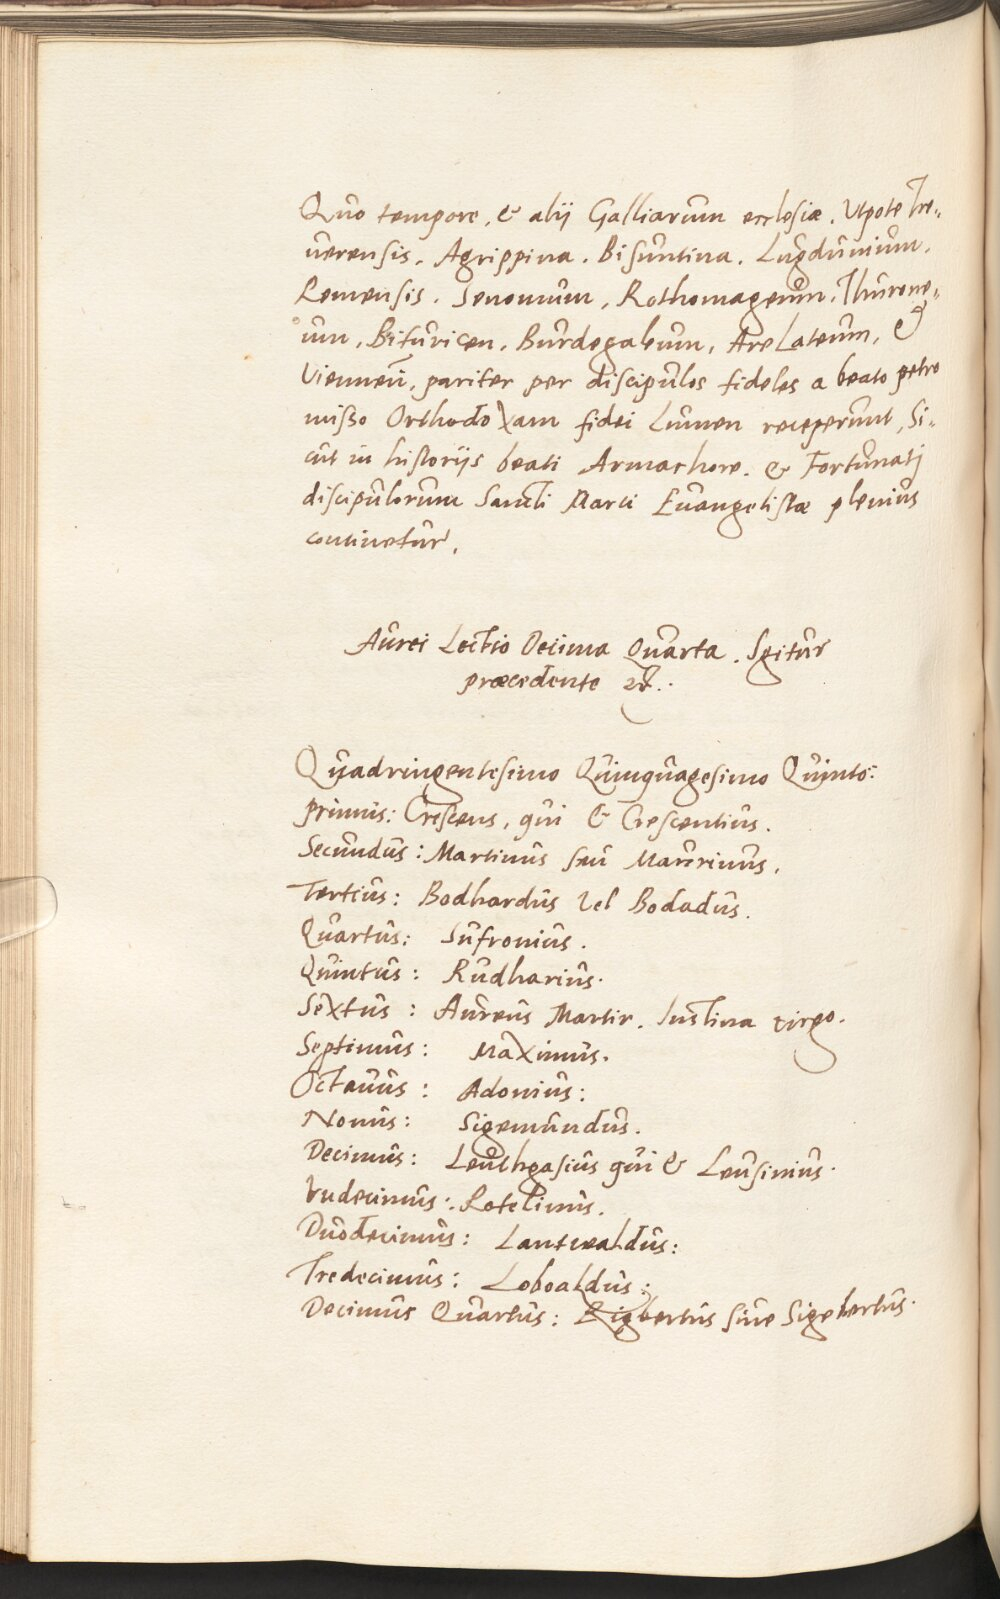 Quo tempore, & alij Galliarum ecclesiæ. Utpote Tre-
uerensis. Agrippina. Bisuntina. Lugdunium.
Remensis. Senonum, Rothomagenm. Thurone-
um, Bituricen. Burdegaleum, Arelateum, &
Vienneū, pariter per discipulos fideles a beato petro
misso Orthodoxam fidei Lumen receperunt, Si-
cut in historijs beati Armachore. & Fortunati
discipulorum Sancti Marci Euangelistæ plenius
continetur.
Aurei Lectio Decima Quarta. Igitur
præcedente &c.
Quadringentesimo Quinquagesimo Quinto:
primus: Crescens, qui & Crescentius.
Secundus: Martinus seu
Tertius: Bodhardus Vel Bodadus.
Quartus: Sufronius.
Quintus: Rudharius.
Sextus: Aureus Martir. Iustina virgo.
Septimus: Maximus.
Octauus: Adonius:
Nonus: Sigemundus.
Decimus: Leuthgasius qui & Leusinius.
Vndecimus: Rotelinus.
Duodecimus: Lantwaldus:
Tredecimus: Loboaldus:
Decimus Quartus: Rigbertus siue Sigebertus.